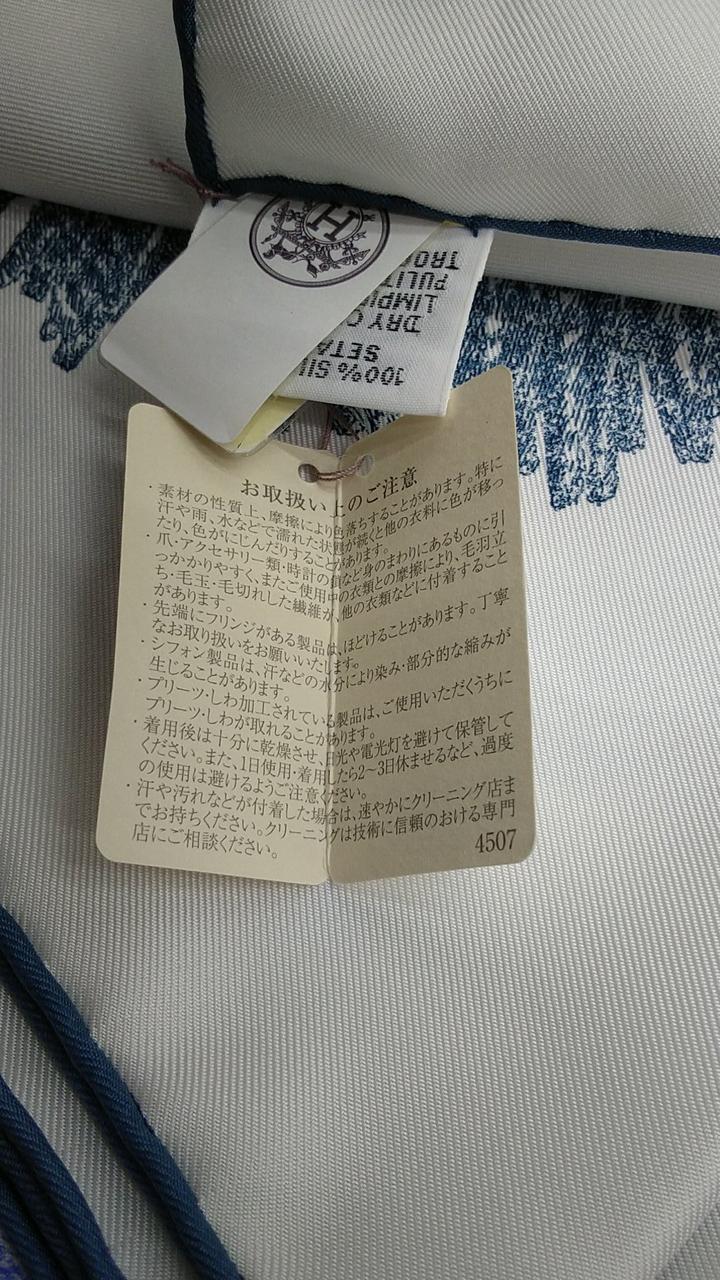 H
TRO
PULIT
LIMPI
DRY C
SETA
100% SI
お取扱い上のご注意
・素材の性質上、摩擦により色落ちすることがあります。特に
汗や雨、水などで濡れた状態が続くと他の衣料に色が移っ
たり、色がにじんだりすることがあります。
・爪・アクセサリー類・時計の鎖など身のまわりにあるものに引
っかかりやすく、またご使用中の衣類との摩擦により、毛羽立
ち・毛玉・毛切れした繊維が、他の衣類などに付着すること
があります。
・先端にフリンジがある製品は、ほどけることがあります。丁寧
なお取り扱いをお願いいたします。
・シフォン製品は、汗などの水分により染み・部分的な縮みが
生じることがあります。
・プリーツ・しわ加工されている製品は、ご使用いただくうちに
プリーツ・しわが取れることがあります。
・着用後は十分に乾燥させ、日光や電光灯を避けて保管して
ください。また、1日使用・着用したら2〜3日休ませるなど、過度
の使用は避けるようご注意ください。
・汗や汚れなどが付着した場合は、速やかにクリーニング店ま
でお持ちください。クリーニングは技術に信頼のおける専門
店にご相談ください。
4507